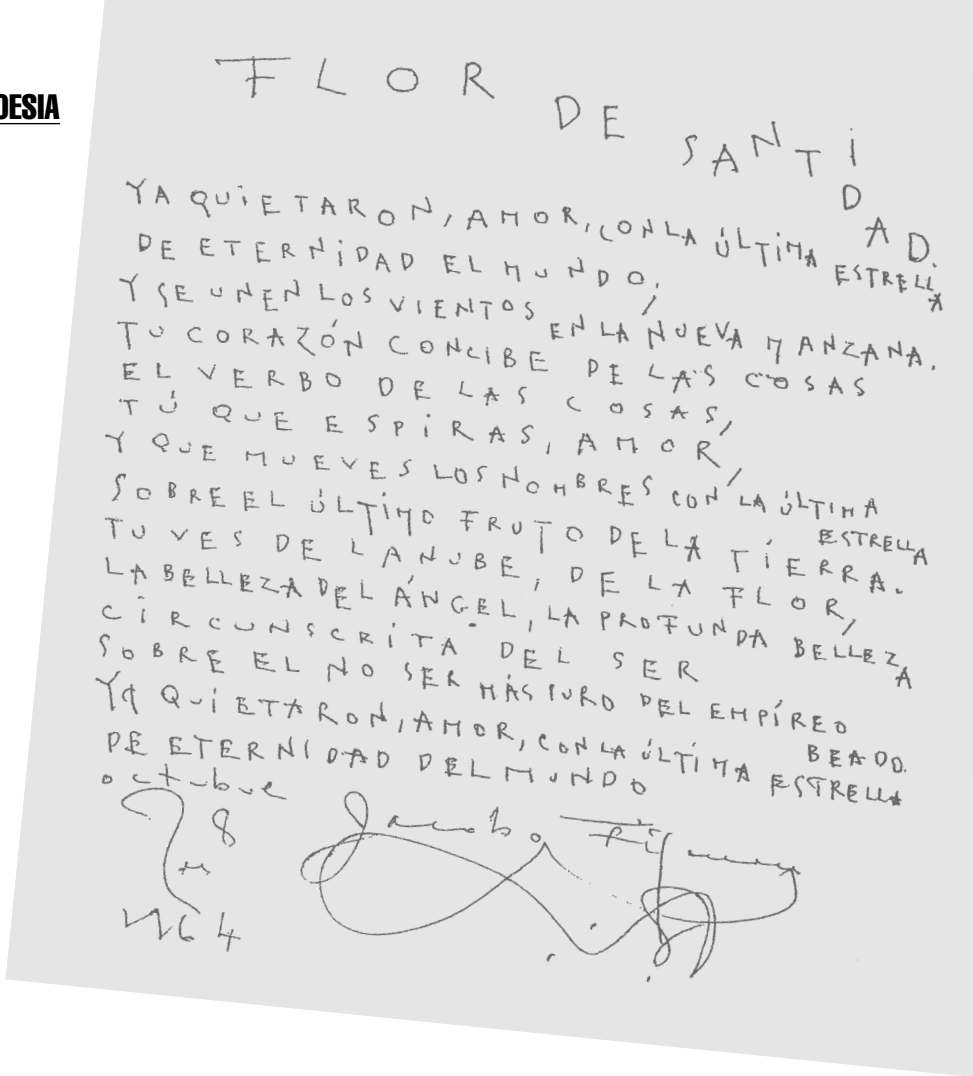 OESIA
FLOR DE SANTIDAD.
YA QUIETARON, AMOR, CON LA ÚLTIMA ESTRELLA
DE ETERNIDAD EL MUNDO.
Y SE UNEN LOS VIENTOS EN LA NUEVA MANZANA.
TU CORAZÓN CONCIBE DE LAS COSAS
EL VERBO DE LAS COSAS,
TÚ QUE ESPIRAS, AMOR,
Y QUE MUEVES LOS NOMBRES CON LA ÚLTIMA ESTRELLA
SOBRE EL ÚLTIMO FRUTO DE LA TIERRA.
TU VES DE LA NUBE, DE LA FLOR,
LA BELLEZA DEL ÁNGEL, LA PROFUNDA BELLEZA
CIRCUNSCRITA DEL SER
SOBRE EL NO SER MÁS PURO DEL EMPÍREO
BEADO.
YA QUIETARON, AMOR, CON LA ÚLTIMA ESTRELLA
DE ETERNIDAD DEL MUNDO
octubre
8
Jacobo
64